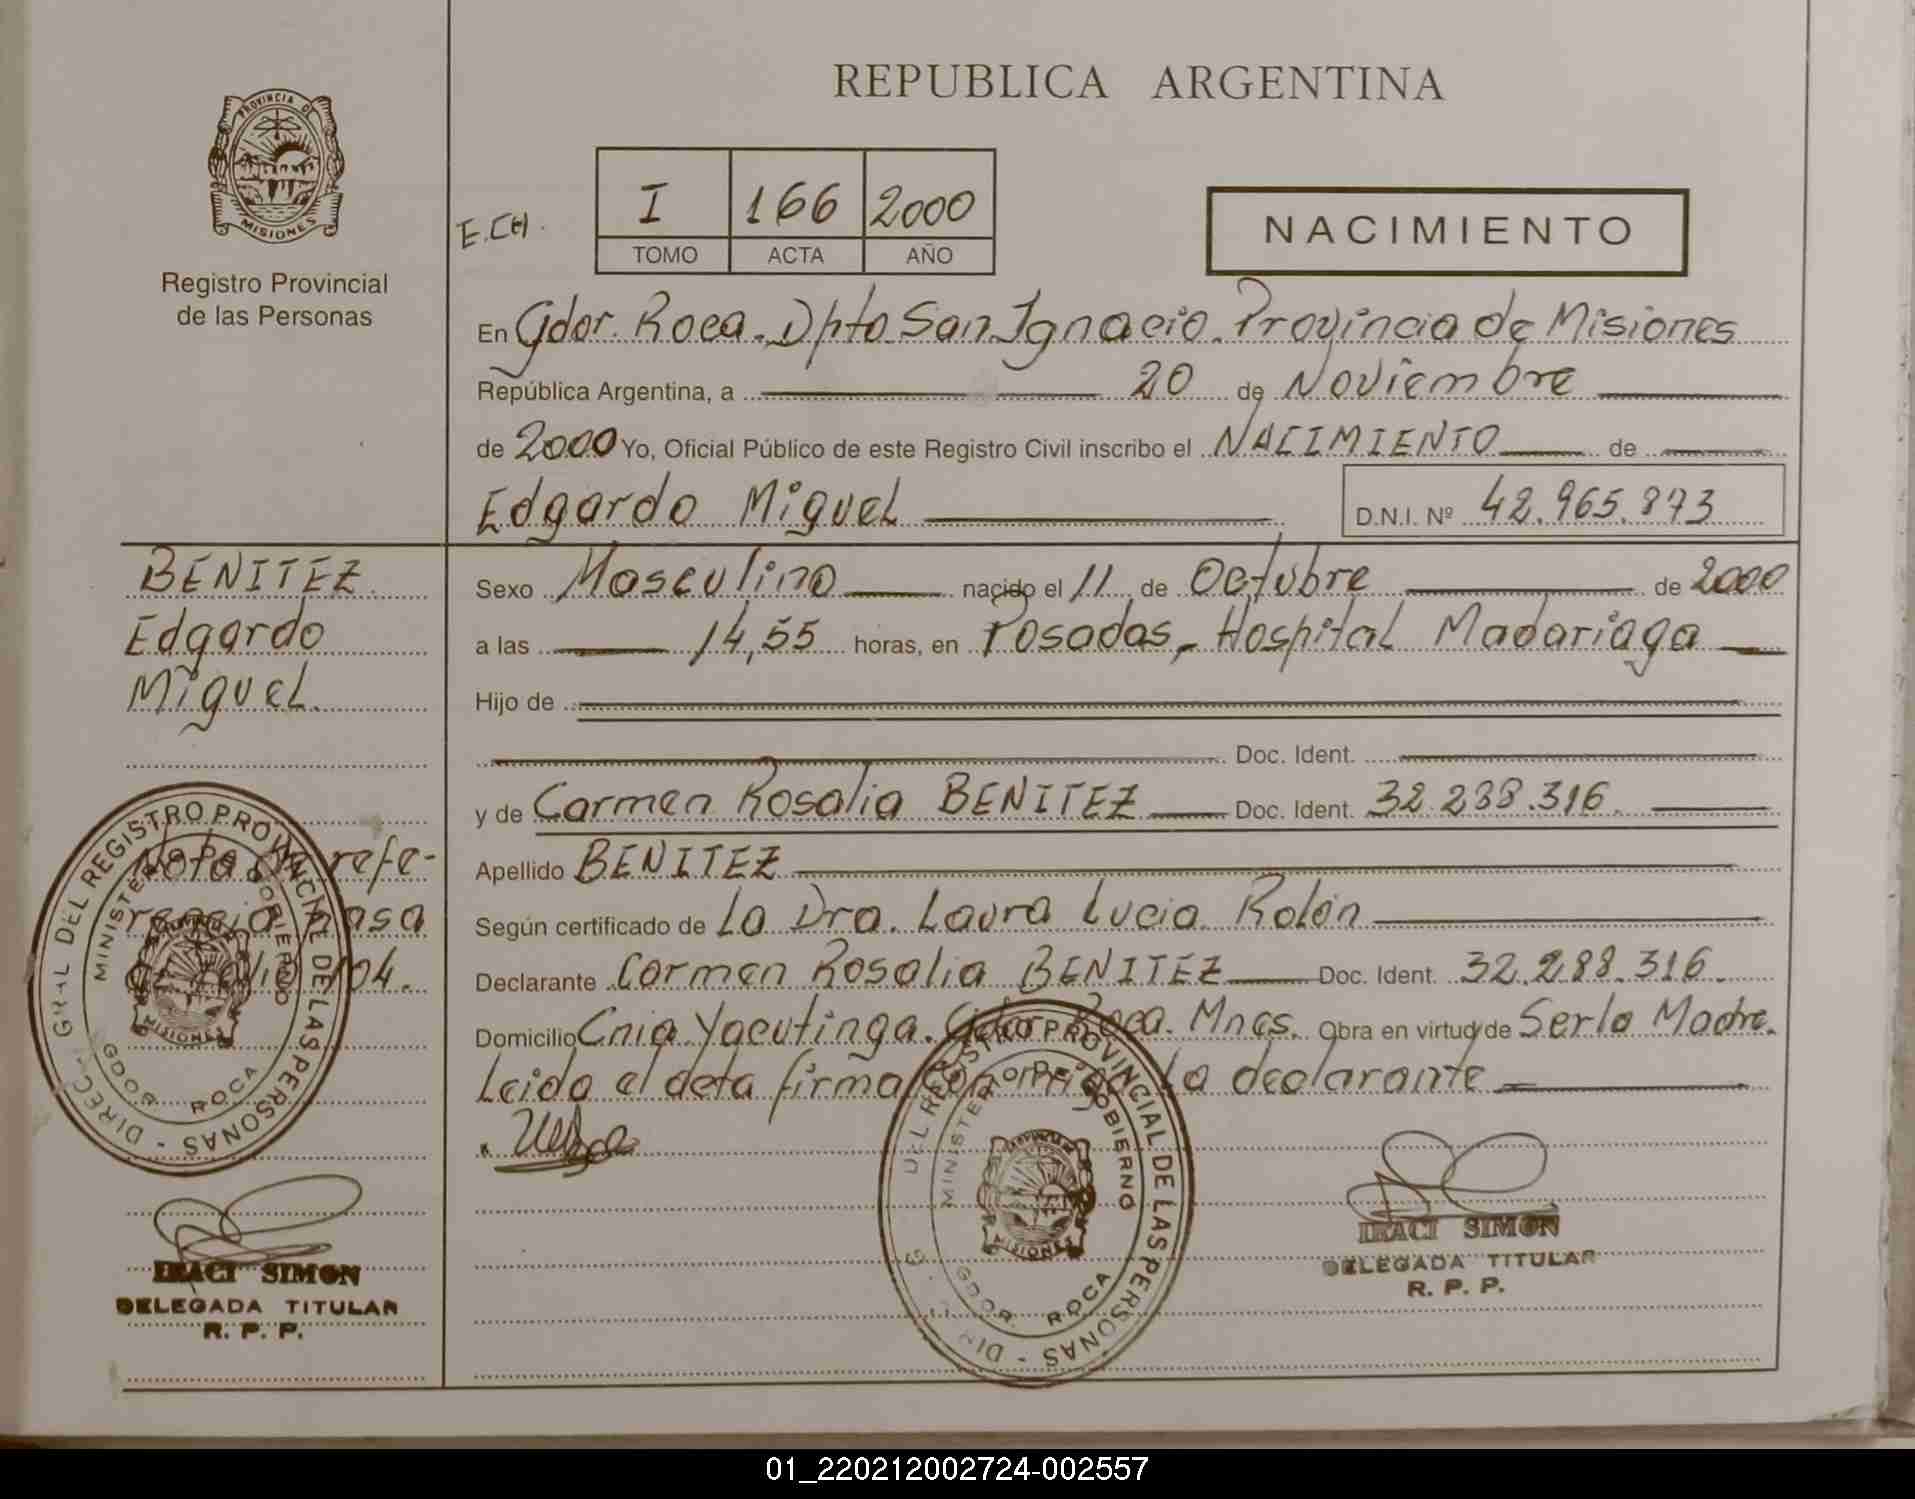 REPUBLICA ARGENTINA
PROVINCIA DE
MISIONES
Registro Provincial
de las Personas
E.CH.
I 166 2000
TOMO ACTA AÑO
NACIMIENTO
En Gdor. Roca. Dpto San Ignacio. Provincia de Misiones
República Argentina, a 20 de Noviembre
de 2000 Yo, Oficial Público de este Registro Civil inscribo el NACIMIENTO de
Edgardo Miguel D.N.I. Nº 42.965.873
BENITEZ
Edgardo
Miguel.
Sexo Masculino nacido el 11 de Octubre de 2000
a las 14,55 horas, en Posadas, Hospital Madariaga
Hijo de
Doc. Ident.
y de Carmen Rosalia BENITEZ Doc. Ident. 32.288.316.
Apellido BENITEZ
Según certificado de La Dra. Laura Lucia Rolón
Declarante Carmen Rosalia BENITEZ Doc. Ident. 32.288.316.
Domicilio Cnia Yacutinga. Gdor Roca. Mnes. Obra en virtud de Ser la Madre.
Leida el acta firma conmigo la declarante
Nota de refe-
rencia pasa
al folio 104.
DIREC. GRAL DEL REGISTRO PROVINCIAL DE LAS PERSONAS
MINISTERIO DE GOBIERNO
MISIONES
GDOR. ROCA
IRACI SIMON
DELEGADA TITULAR
R. P. P.
DEL REGISTRO PROVINCIAL DE LAS PERSONAS - DIR
MINISTERIO DE GOBIERNO
MISIONES
GDOR. ROCA
IRACI SIMON
DELEGADA TITULAR
R. P. P.
01_220212002724-002557